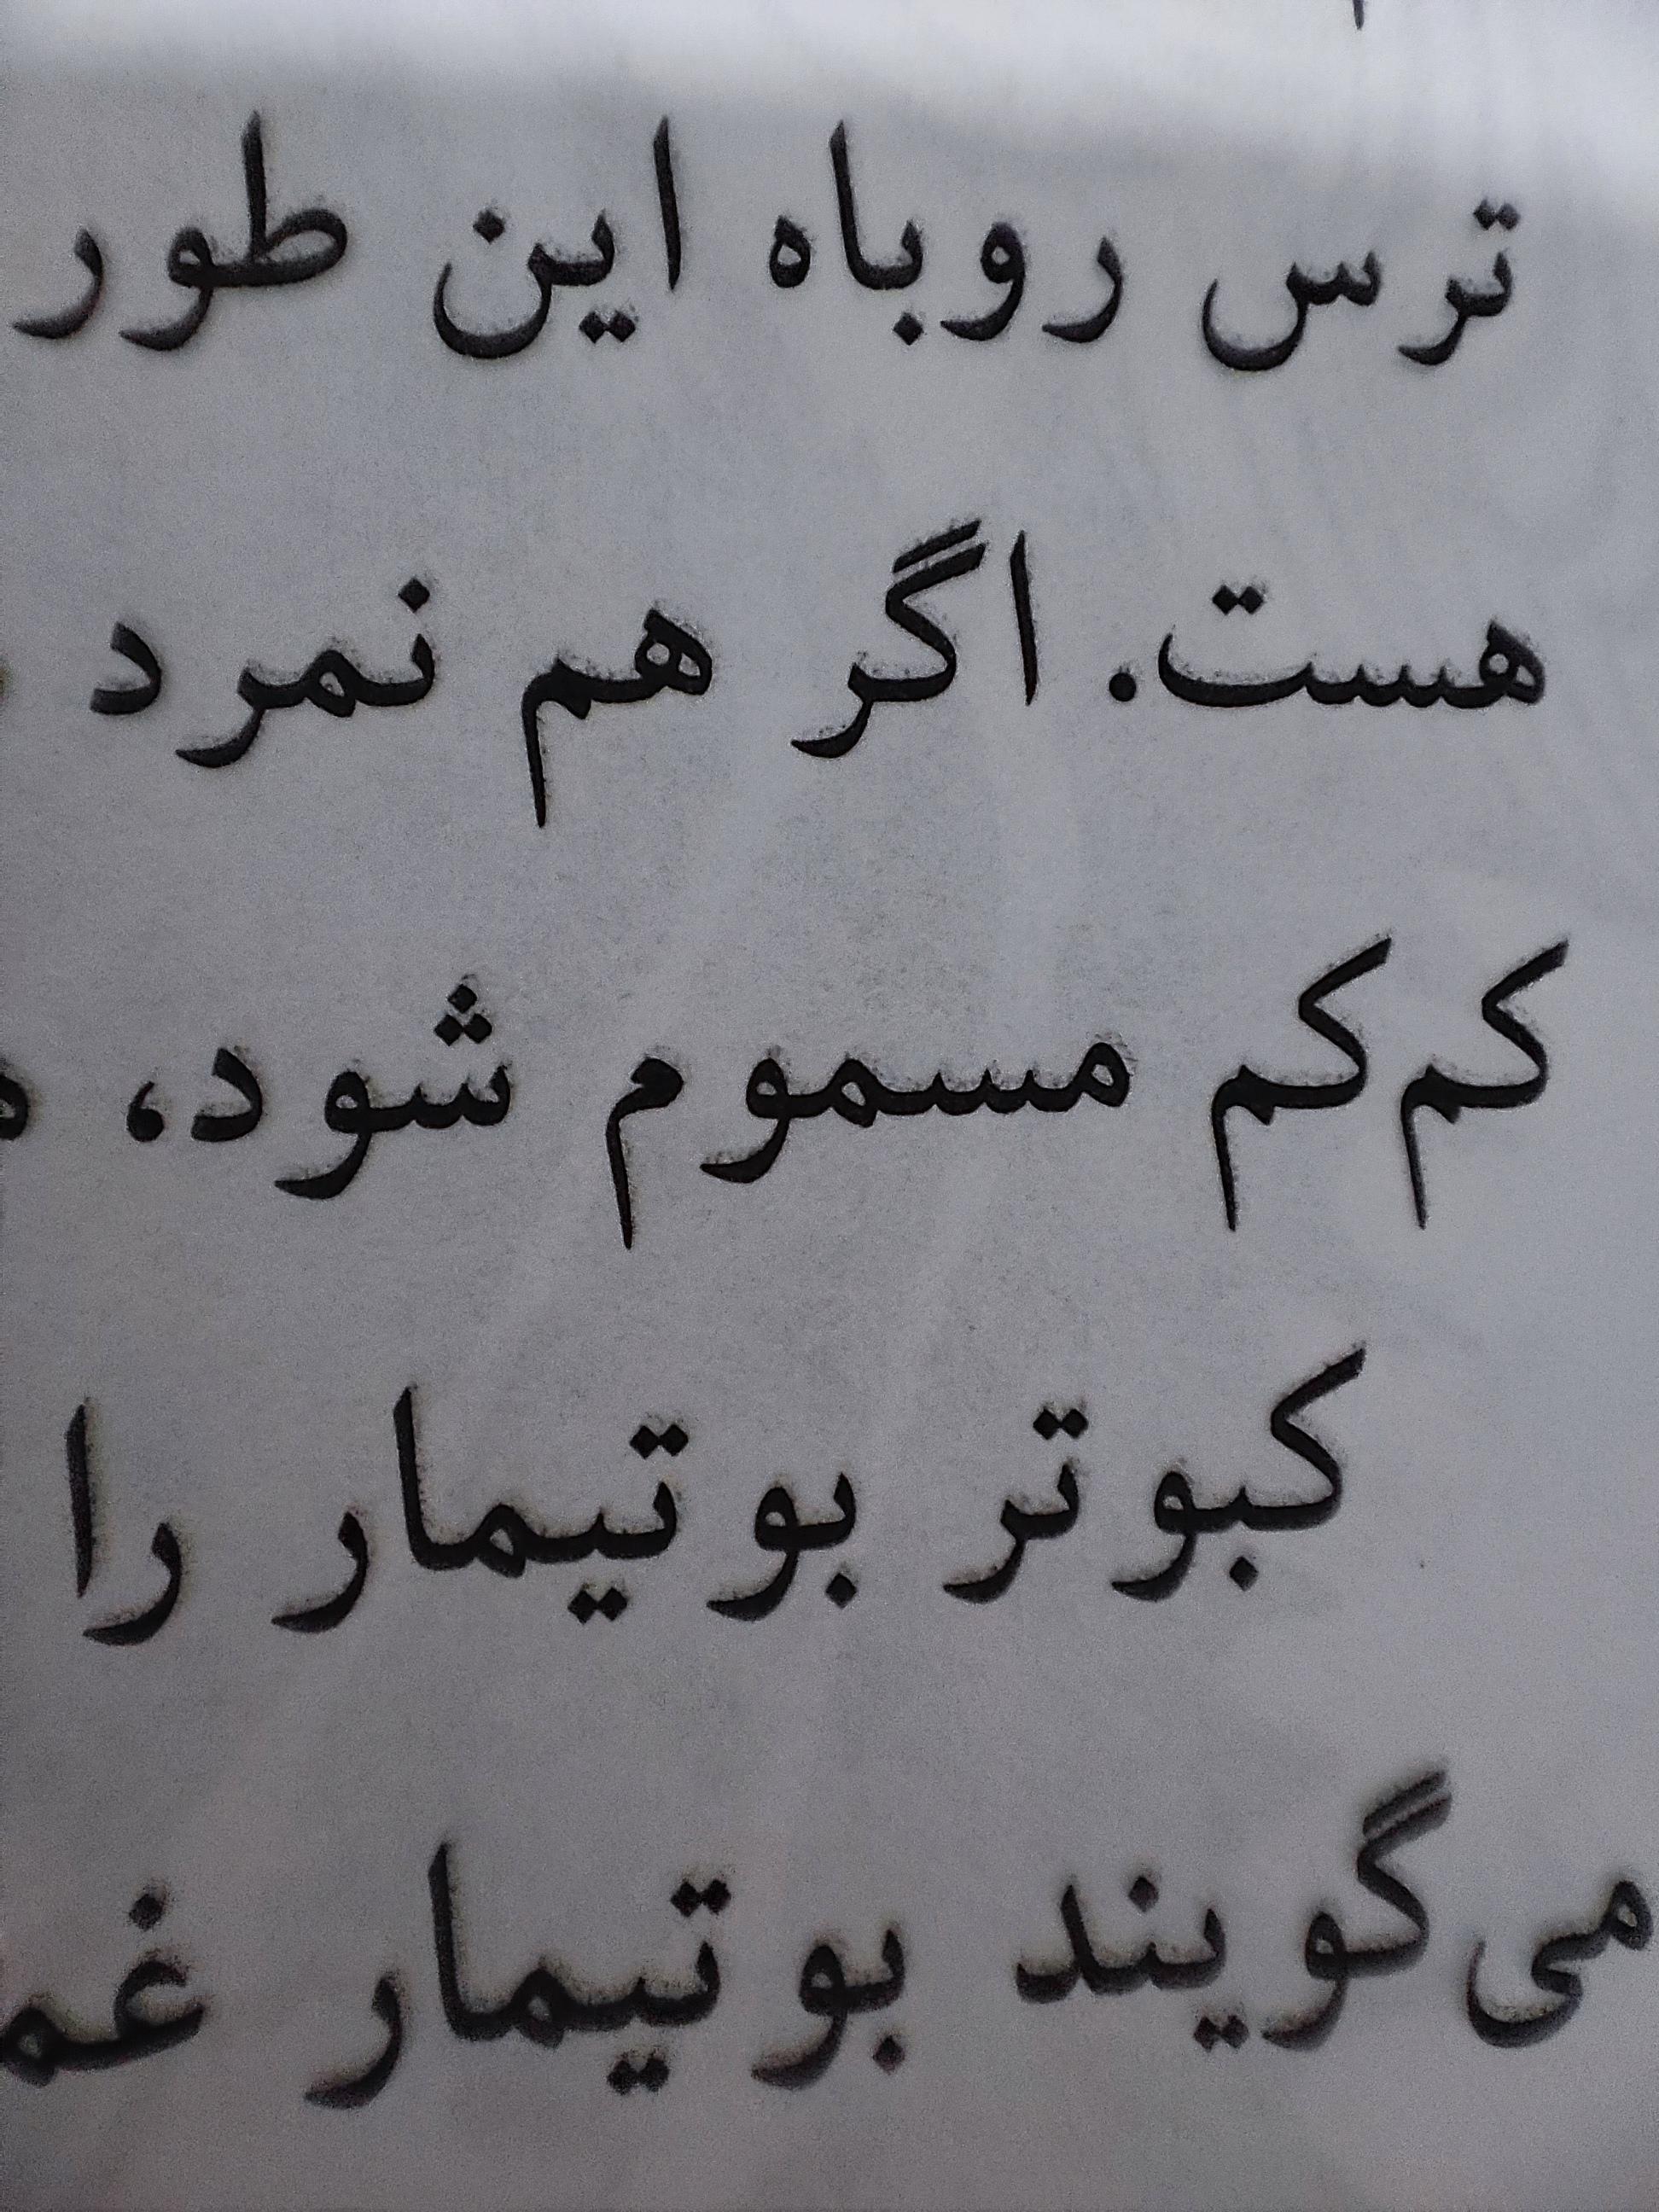 ترس روباه این طور
هست. اگر هم نمرد
کم‌کم مسموم شود،
کبوتر بوتیمار را
می‌گویند بوتیمار